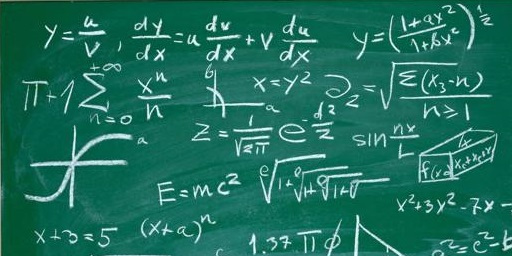 y = u/v, dy/dx = u dv/dx + v du/dx
y = ((1+ax²)/(1+bx²))^½
π+1 Σ xⁿ/n
+∞
n=0
b
a
x=y²
∂z = √(Σ(x₃-n)/n≥1)
a
z = 1/√2π e^-d²/z
sin nx/L
f(x)
E=mc²
x²+3x²-7x-
x+3=5
(x+a)ⁿ
1.37 π φ
a²=c²-b